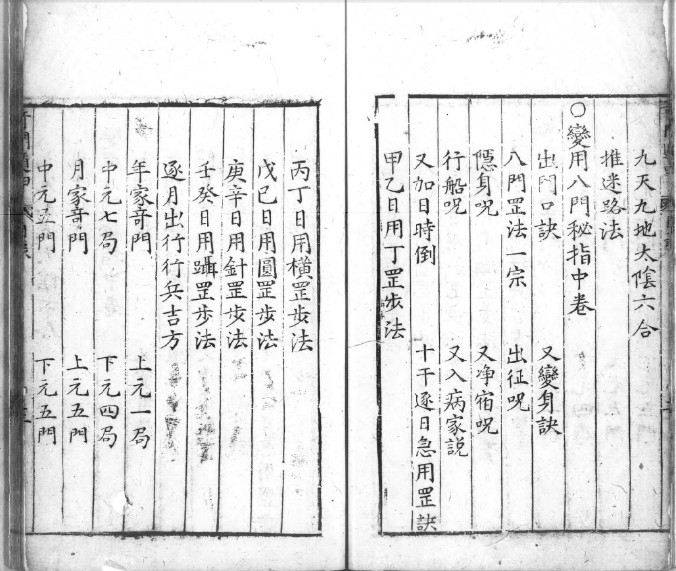 九天九地太陰六合
推迷路法
○變用八門秘指中卷
出門口訣　又變身訣
八門罡法一宗　出征呪
隱身呪　又净宿呪
行船呪　又入病家説
又加日時倒　十干逐日急用罡訣
甲乙日用丁罡步法
丙丁日用橫罡步法
戊己日用圓罡步法
庚辛日用針罡步法
壬癸日用躡罡步法
逐月出行行兵吉方
年家竒門　上元一局
中元七局　下元四局
月家竒門　上元五門
中元五門　下元五門